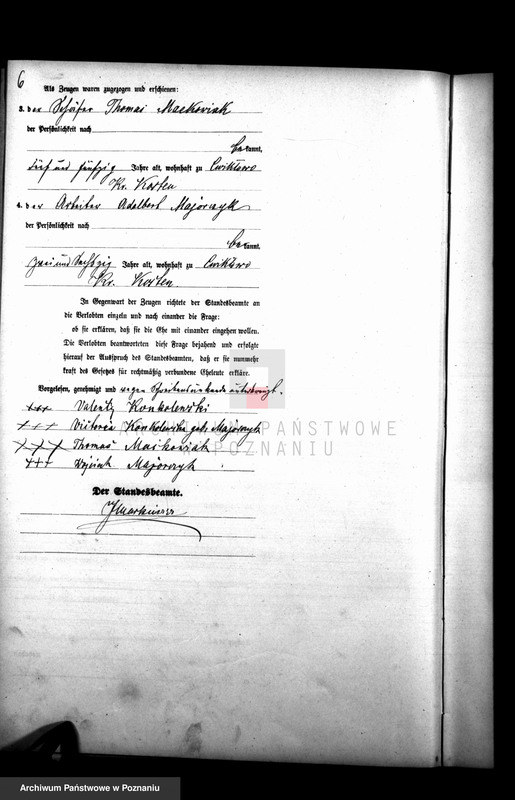 6
Als Zeugen waren zugezogen und erschienen:
3. der Schäfer Thomas Maćkowiak
der Persönlichkeit nach
bekannt,
fünf und fünfzig Jahre alt, wohnhaft zu
Kr. Kosten
4. der Arbeiter Adalbert Majorczyk
der Persönlichkeit nach
bekannt,
zwei und sechszig Jahre alt, wohnhaft zu
Kr. Kosten.
In Gegenwart der Zeugen richtete der Standesbeamte an
die Verlobten einzeln und nach einander die Frage:
ob sie erklären, daß sie die Ehe mit einander eingehen wollen.
Die Verlobten beantworteten diese Frage bejahend und erfolgte
hierauf der Ausspruch des Standesbeamten, daß er sie nunmehr
kraft des Gesetzes für rechtmäßig verbundene Eheleute erkläre.
Vorgelesen, genehmigt und wegen Schreibensunkunde unterkreuzt.
+++ Valentz Konkolewski
+++ Victoria Konkolewska geb. Majorczyk
+++ Thomas Maćkowiak
+++ Majorczyk
Der Standesbeamte.
PAŃSTWOWE
POZNANIU
Archiwum Państwowe w Poznaniu